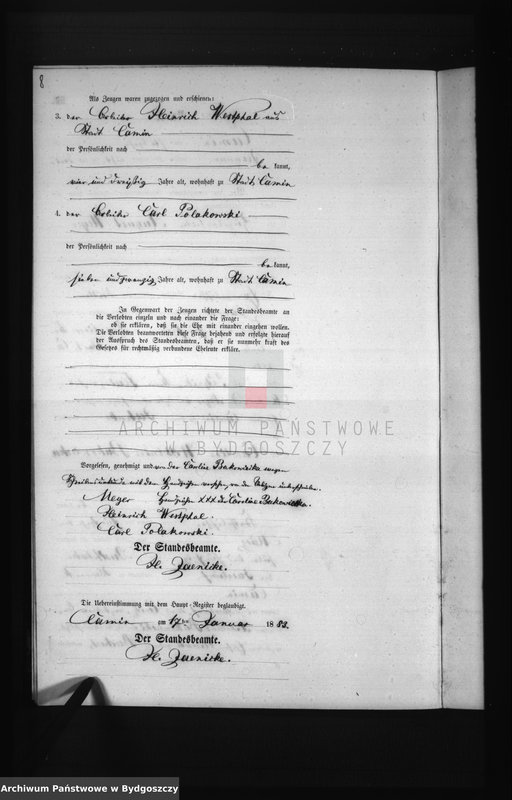 8
Als Zeugen waren zugezogen und erschienen:
3. der Arbeiter Heinrich Westphal aus
Stadt Camin
der Persönlichkeit nach
be kannt,
vier und dreißig Jahre alt, wohnhaft zu Stadt Camin
4. der Arbeiter Carl Polakowski
der Persönlichkeit nach
be kannt,
sieben und zwanzig Jahre alt, wohnhaft zu Stadt Camin
In Gegenwart der Zeugen richtete der Standesbeamte an
die Verlobten einzeln und nach einander die Frage:
ob sie erklären, daß sie die Ehe mit einander eingehen wollen.
Die Verlobten beantworteten diese Frage bejahend und erfolgte hierauf
der Ausspruch des Standesbeamten, daß er sie nunmehr kraft des
Gesetzes für rechtmäßig verbundene Eheleute erkläre.
ARCHIWUM PAŃSTWOWE
W BYDGOSZCZY
Vorgelesen, genehmigt und von der Caroline wegen
Schreibensunkunde mit dem Handzeichen versehen, von den unterschrieben.
Meger Handzeichen XXX der Caroline
Heinrich Westphal.
Carl Polakowski.
Der Standesbeamte.
H. Jaenicke.
Die Uebereinstimmung mit dem Haupt-Register beglaubigt.
Camin am 17ten Januar 1883.
Der Standesbeamte.
H. Jaenicke.
Archiwum Państwowe w Bydgoszczy